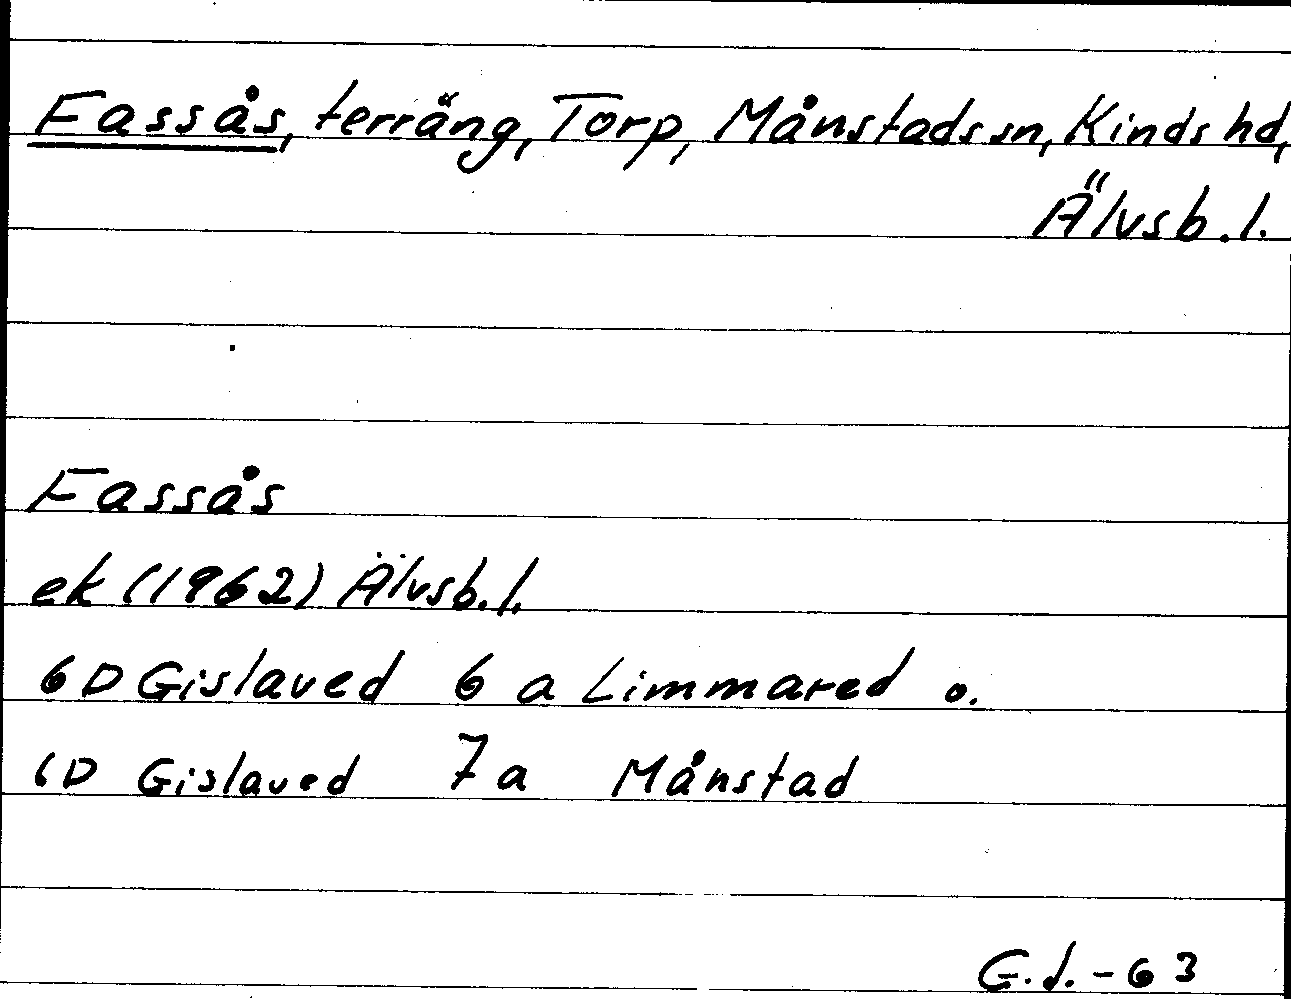 Fassås, terräng, Torp, Månstads sn, Kinds hd,
Älvsb. l.
Fassås
ek (1962) Älvsb. l.
6D Gislaved 6 a Limmared o.
6D Gislaved 7a Månstad
G.J. - 63